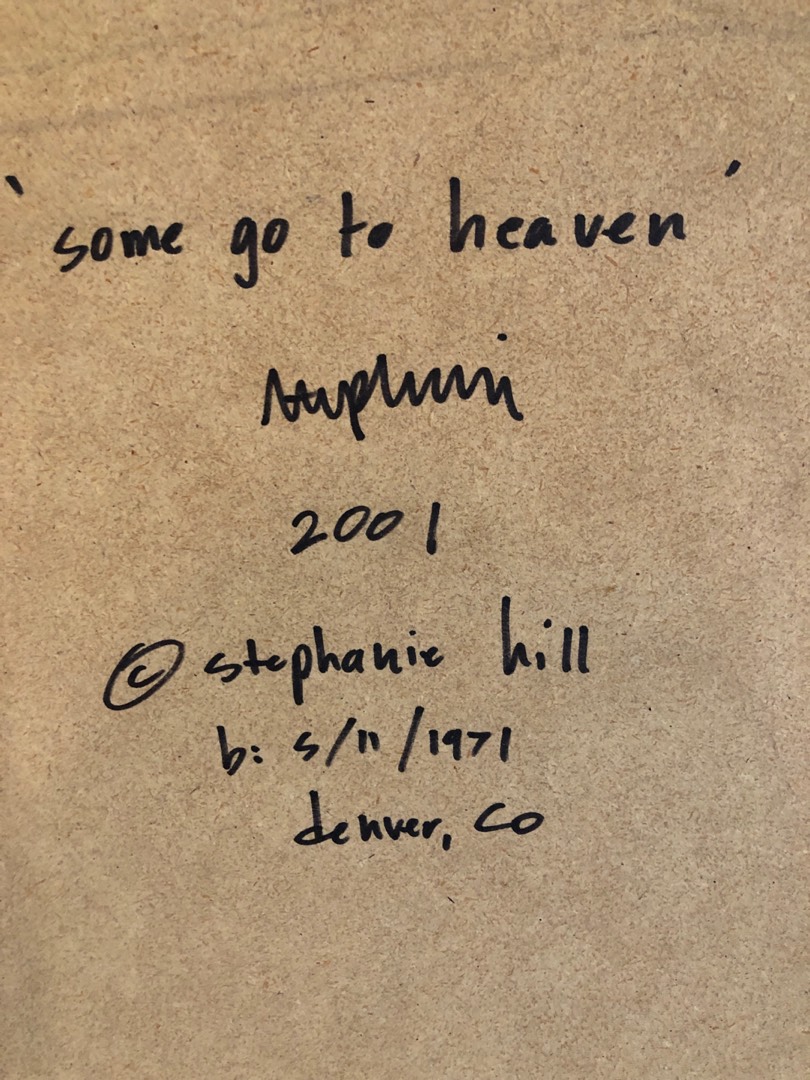 'some go to heaven'
2001
© stephanie hill
b: 5/11/1971
denver, co